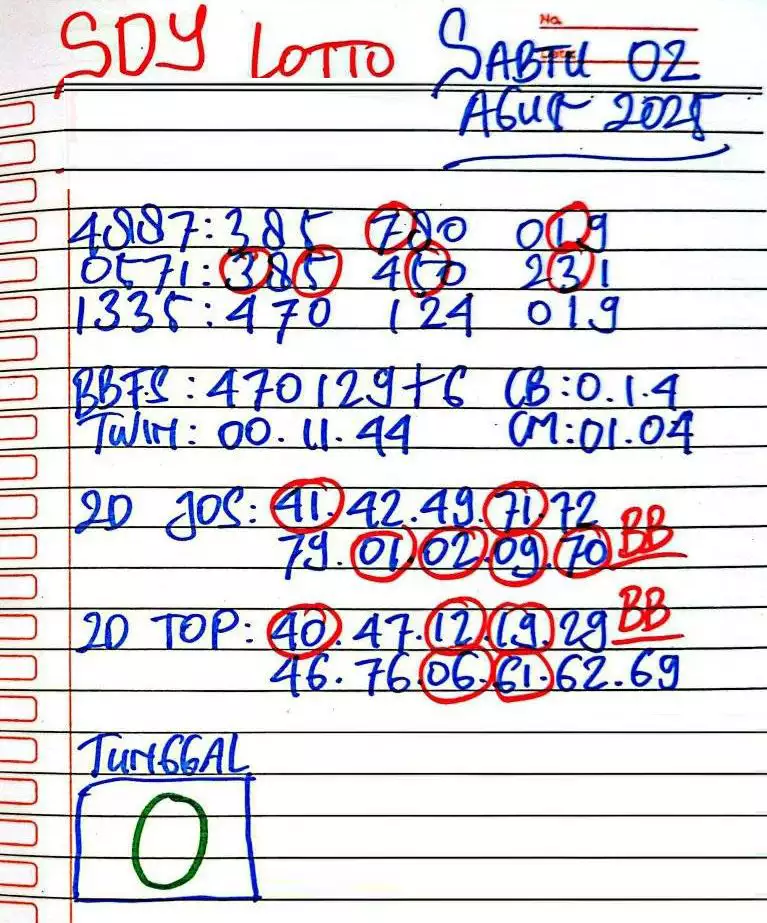 No.
SDY LOTTO SABTU 02
AGUS 2025
4887:385 780 019
0571:385 450 231
1335:470 124 019
BBFS: 470129+6 CB:0.1.4
TWIN: 00.11.44 CM:01.04
2D JOS: 41.42.49.71.72
79.01.02.09.70 BB
2D TOP: 40.47.12.19.29 BB
46.76.06.61.62.69
TUNGGAL
0